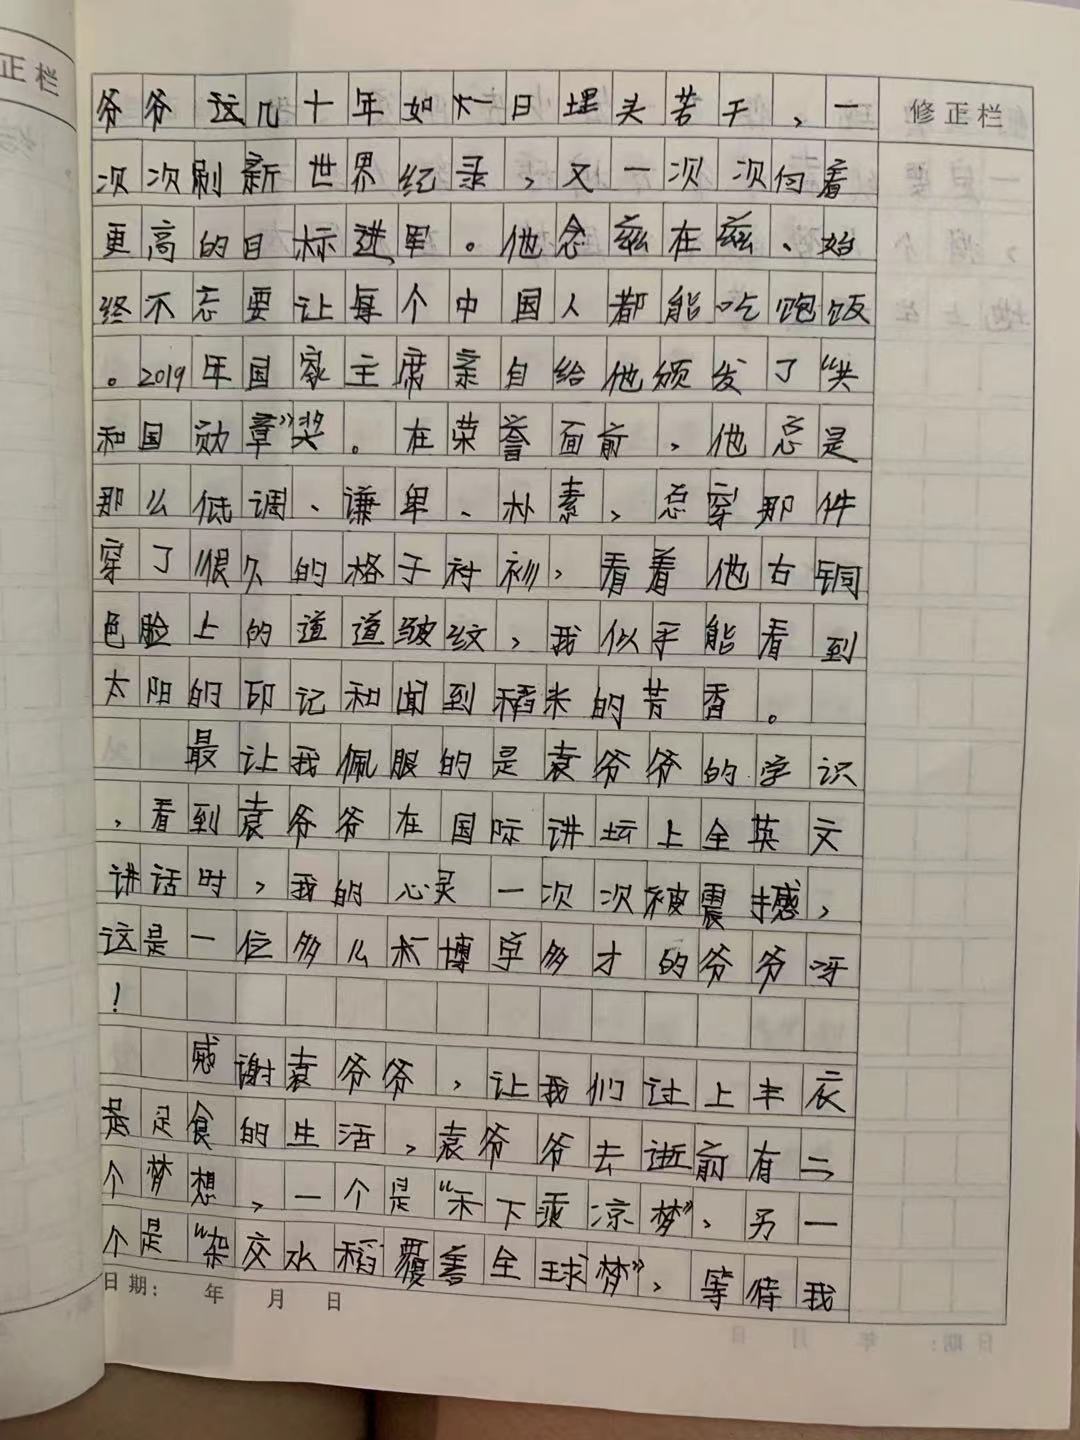 正栏
修正栏
爷爷这几十年如一日埋头苦干，一
次次刷新世界纪录，又一次次向着
更高的目标进军。他念兹在兹、始
终不忘要让每个中国人都能吃饱饭
。2019年国家主席亲自给他颁发了“共
和国勋章”奖。在荣誉面前，他总是
那么低调、谦卑、朴素，总穿那件
穿了很久的格子衬衫，看着他古铜
色脸上的道道皱纹，我似乎能看到
太阳的印记和闻到稻米的芳香。
最让我佩服的是袁爷爷的学识
，看到袁爷爷在国际讲坛上全英文
讲话时，我的心灵一次次被震撼，
这是一位多么博学多才的爷爷呀
！
感谢袁爷爷，让我们过上丰衣
足食的生活，袁爷爷去逝前有二
个梦想，一个是“禾下乘凉梦”，另一
个是“杂交水稻覆盖全球梦”，等待我
日期： 年 月 日